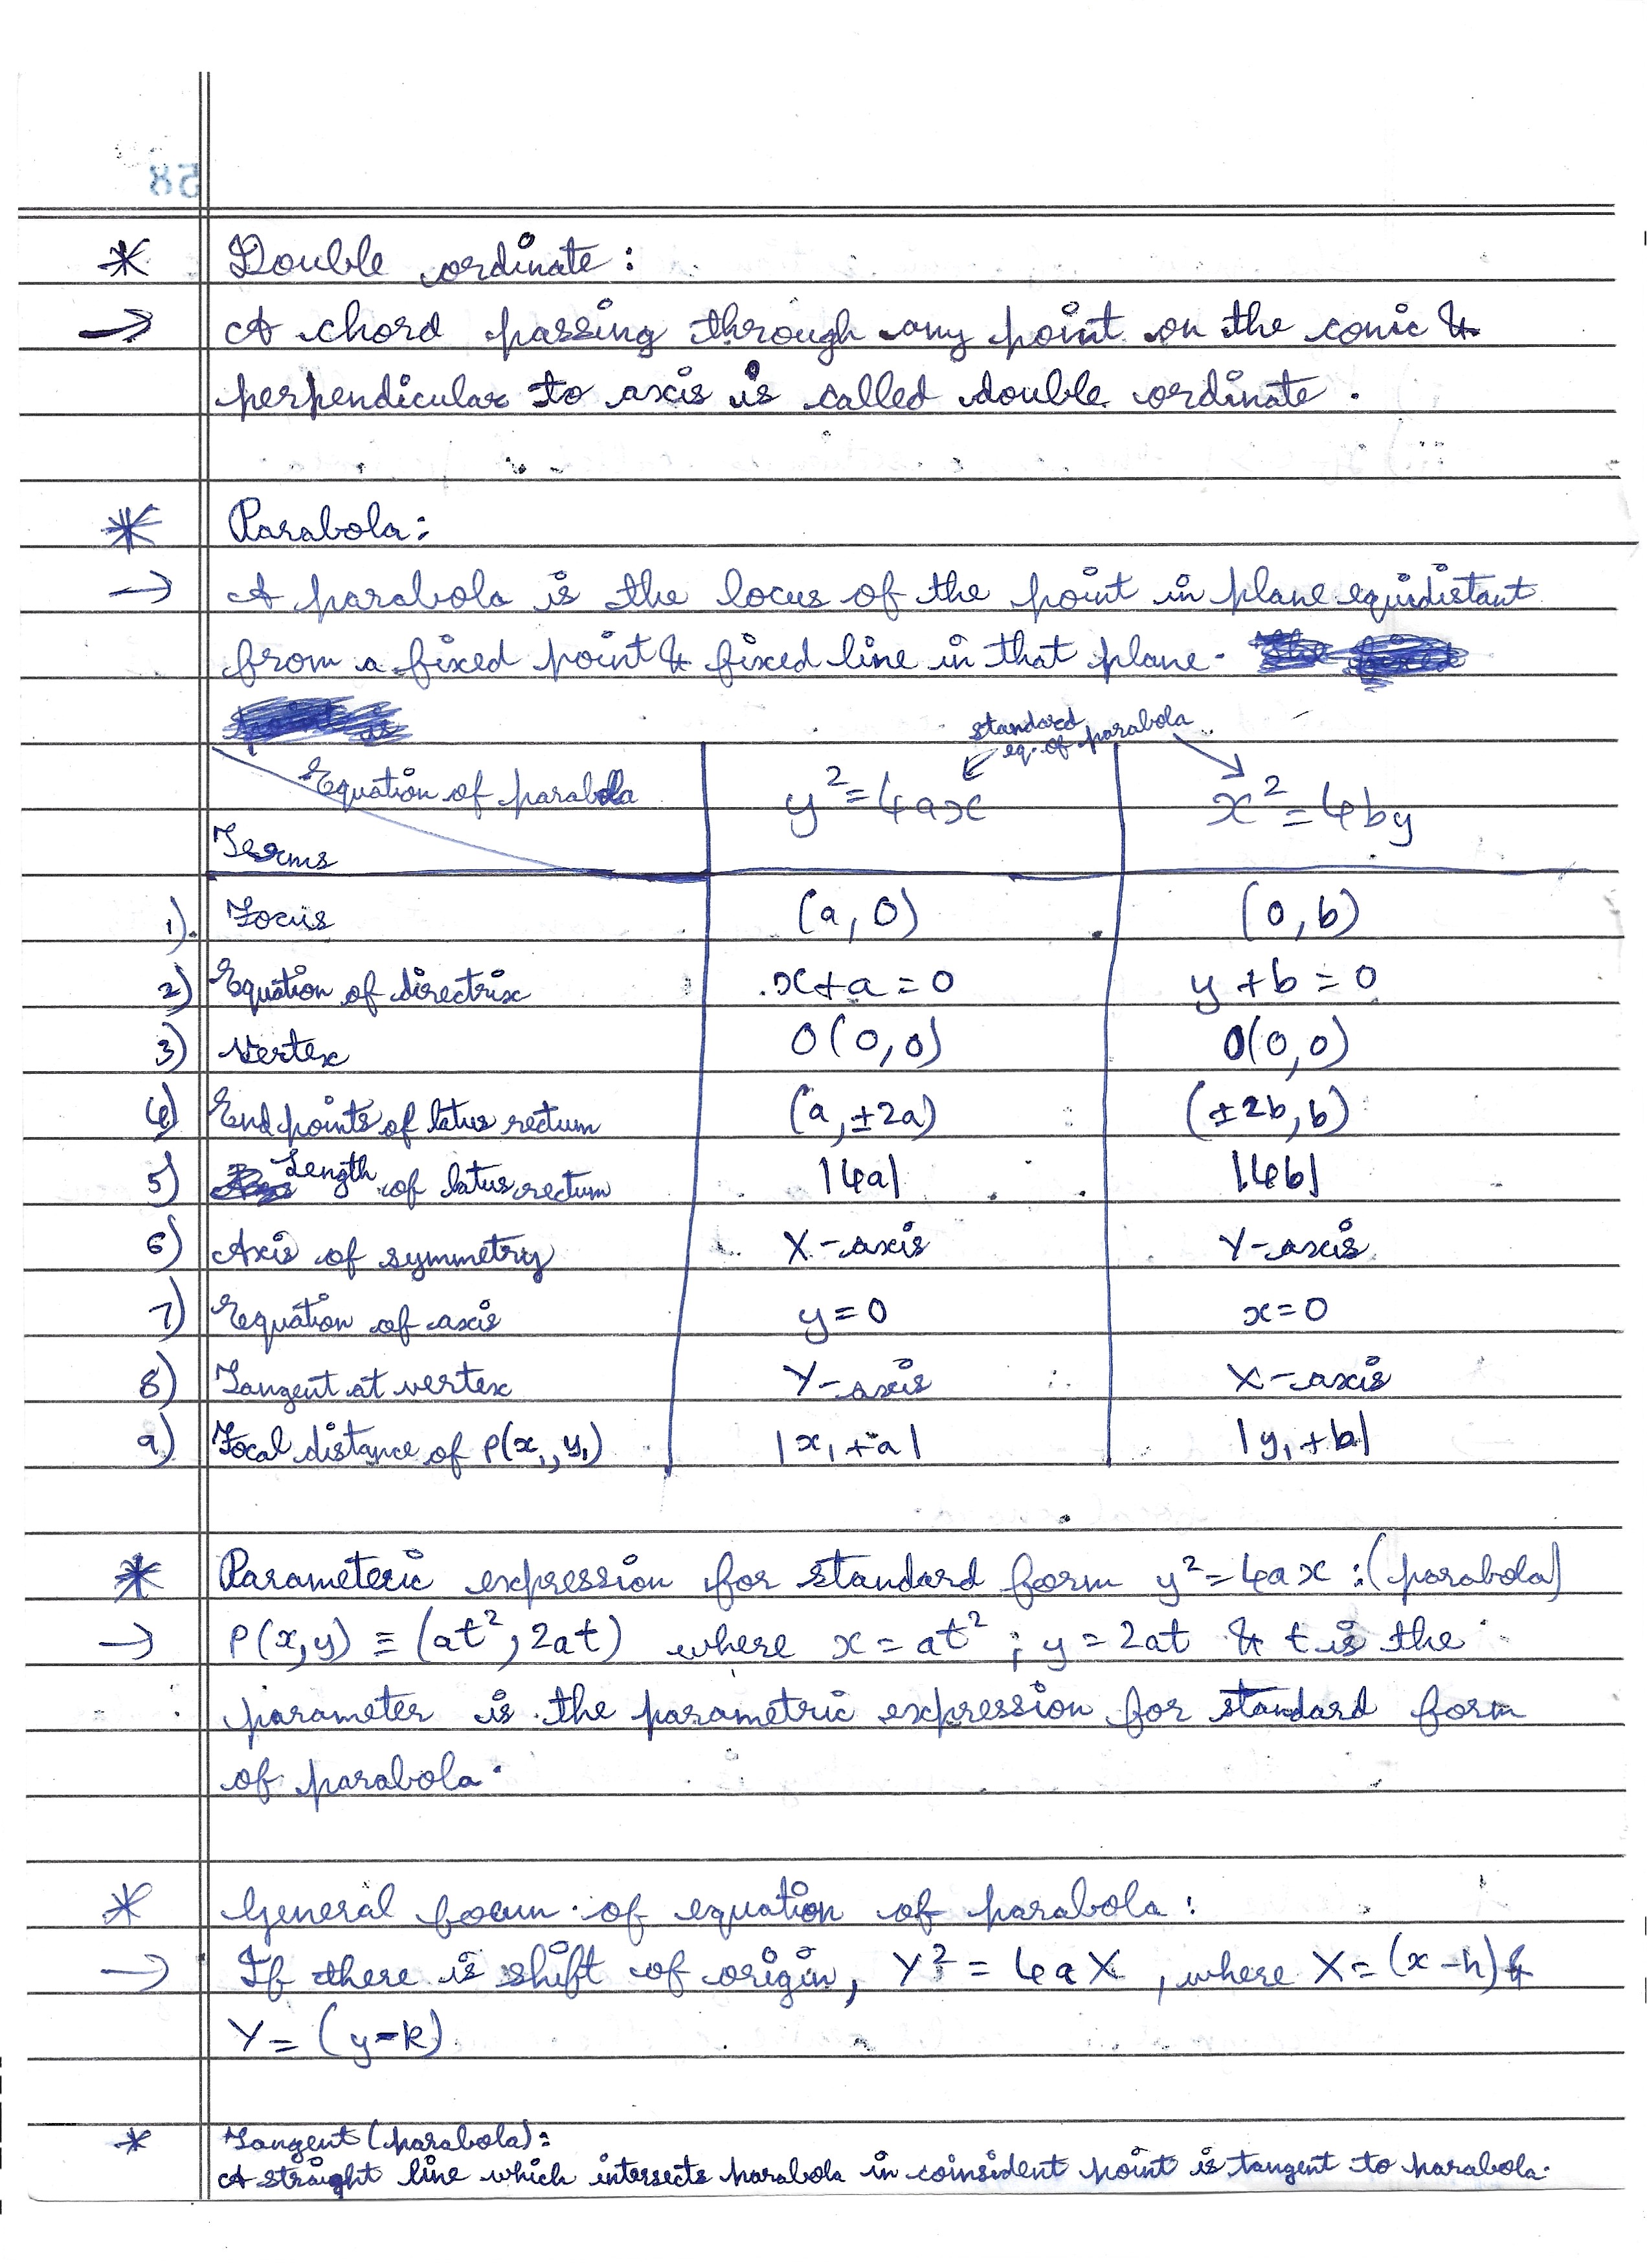 58
* Double ordinate :
→ A chord passing through any point on the conic &
perpendicular to axis is called double ordinate .
* Parabola :
→ A parabola is the locus of the point in plane equidistant
from a fixed point & fixed line in that plane.
standard
eq. of parabola
Equation of parabola y² = 4ax x² = 4by
Terms
1). Focus (a, 0) (0, b)
2) Equation of directrix x+a = 0 y+b = 0
3) Vertex O(0,0) O(0,0)
4) End points of latus rectum (a, ±2a) (±2b, b)
5) Length of latus rectum |4a| |4b|
6) Axis of symmetry X-axis Y-axis
7) Equation of axis y=0 x=0
8) Tangent at vertex Y-axis X-axis
9) Focal distance of P(x₁, y₁) |x₁+a| |y₁+b|
* Parameteric expression for standard form y² = 4ax : (parabola)
→ P(x,y) ≡ (at², 2at) where x = at² ; y = 2at & t is the
parameter is the parametric expression for standard form
of parabola.
* General form of equation of parabola :
→ If there is shift of origin, Y² = 4aX , where X = (x-h) &
Y = (y-k)
* Tangent (parabola) :
A straight line which intersects parabola in coinsident point is tangent to parabola.